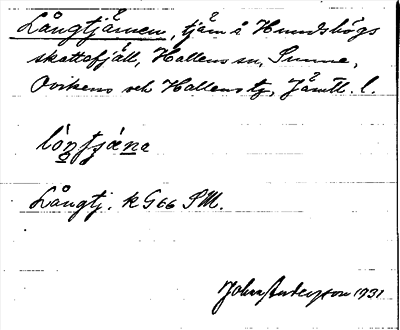 Långtjärnen, tjärn å Hundshögs
skattefjäll, Hallens sn, Sunne,
Ovikens och Hallens tg, Jämtl. l.
Långtj. k G66 SM.
John Anderzson 1931